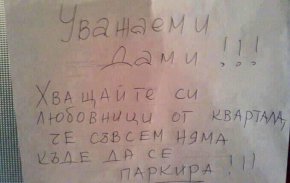 Уважаеми
Дами!!!
Хващайте си
любовници от квартала,
че съвсем няма
къде да се
паркира!!!